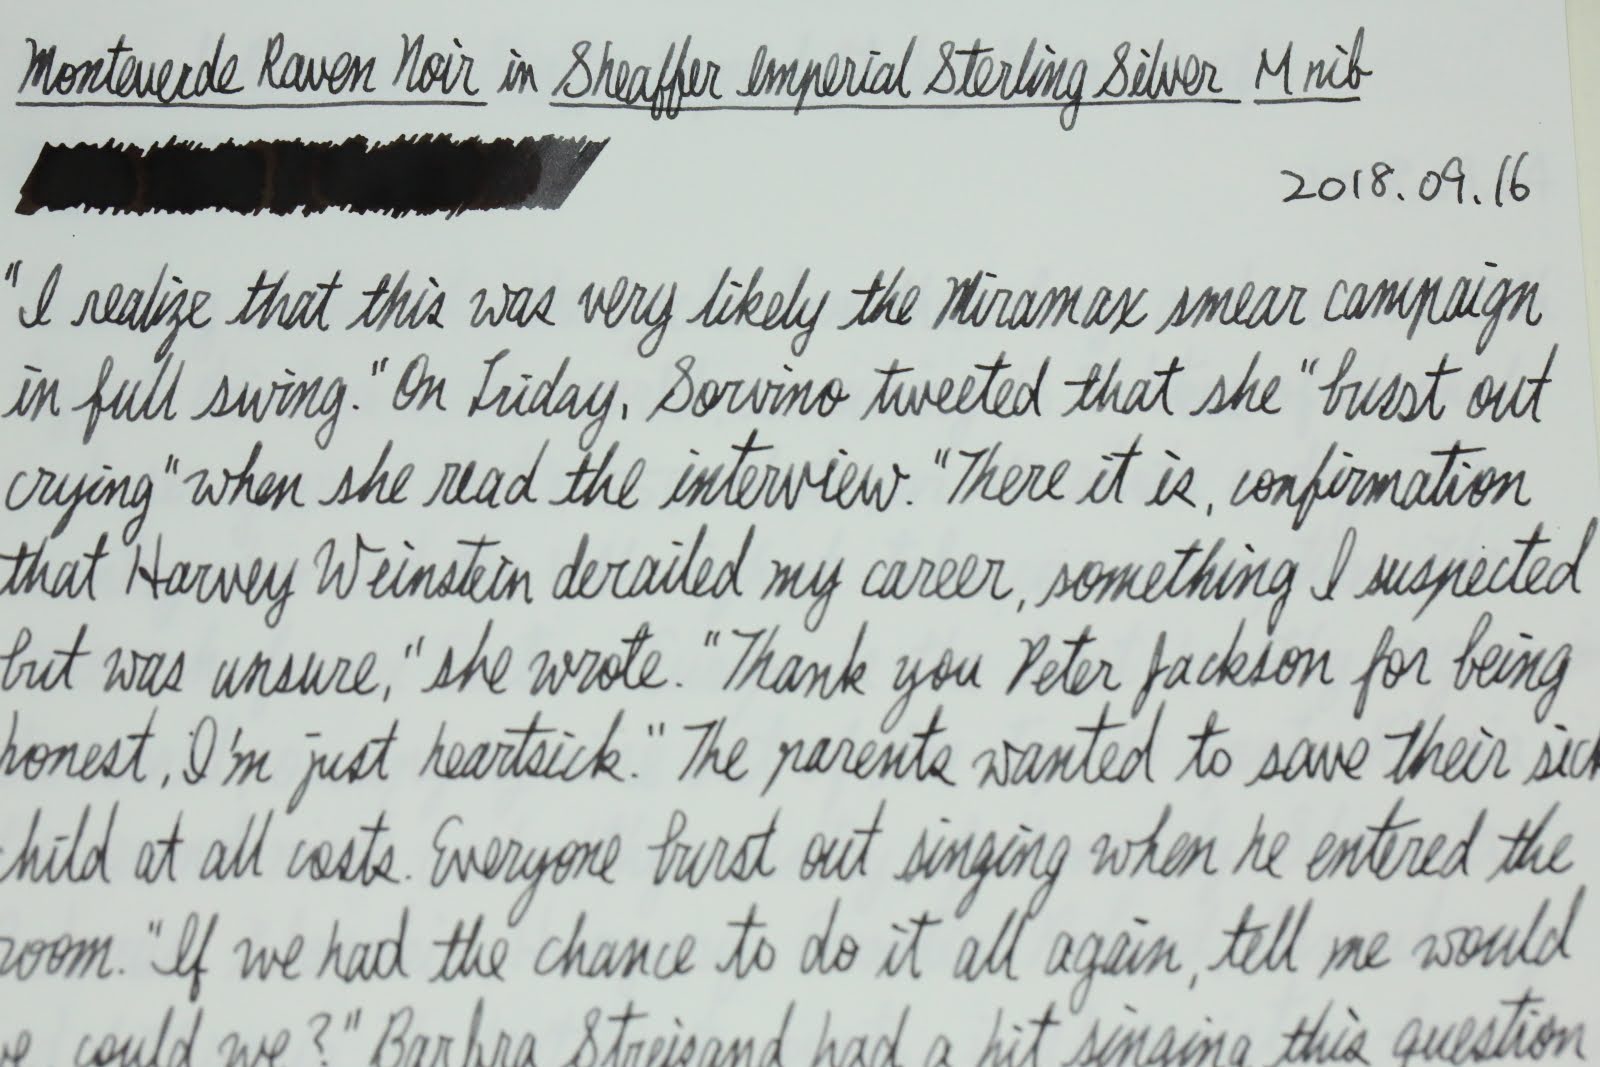 Monteverde Raven Noir in Sheaffer Imperial Sterling Silver M nib
2018.09.16
"I realize that this was very likely the Miramax smear campaign
in full swing." On Friday, Sorvino tweeted that she "burst out
crying" when she read the interview. "There it is, confirmation
that Harvey Weinstein derailed my career, something I suspected
but was unsure," she wrote. "Thank you Peter Jackson for being
honest, I'm just heartsick." The parents wanted to save their sick
child at all costs. Everyone burst out singing when he entered the
room. "If we had the chance to do it all again, tell me would
we, could we?" Barbra Streisand had a hit singing this question